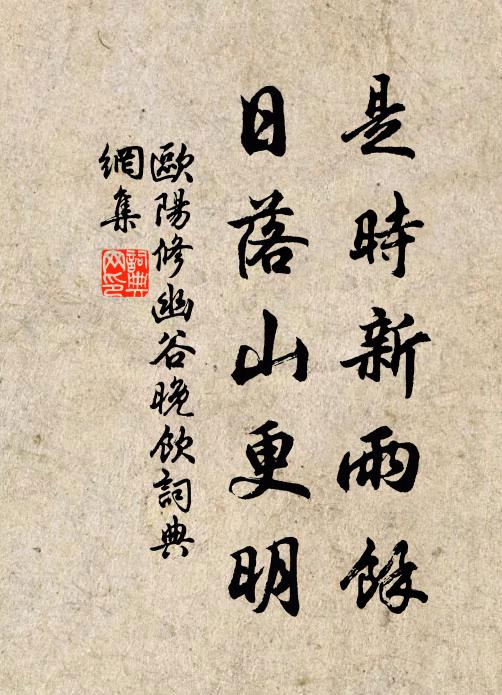 是時新雨餘
日落山更明
歐陽修幽谷晚飲詞典
網集
詞典
网印